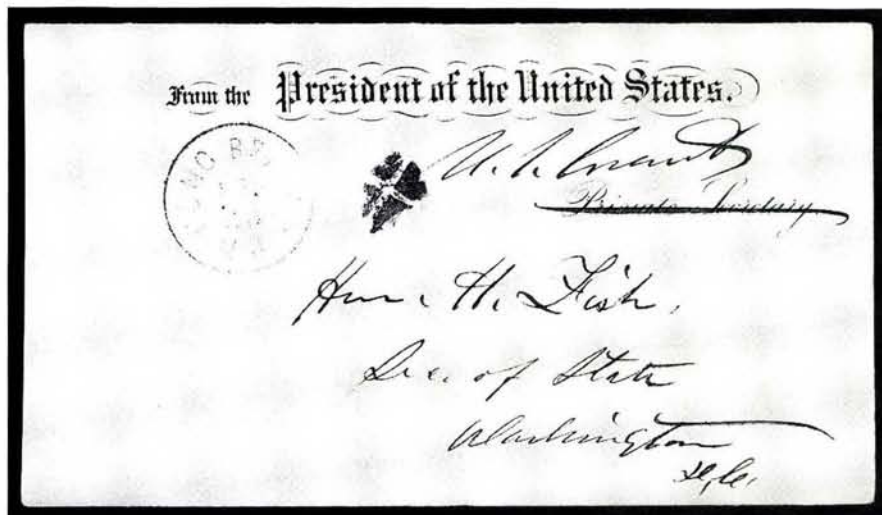 From the President of the United States.
U. S. Grant
Private Secretary
Hon. H. Fish,
Sec. of State
Washington
D.C.